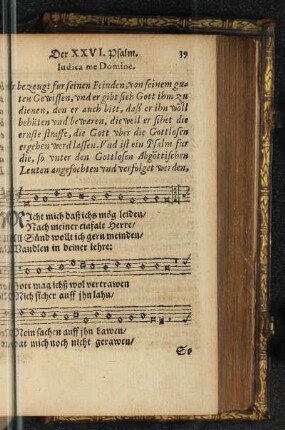 Der XXVI. Psalm. 39
Iudica me Domine.
bezeugt fur seinen Feinden, von seinem gu-
ten Gewissen, vnd er gibt sich Gott ihm zu
dienen, den er auch bitt, daß er ihn wöll
behüten vnd bewaren, die weil er sihet die
ernste straffe, die Gott vber die Gottlosen
ergehen werd lassen. Vnd ist ein Psalm für
die, so vnter den Gottlosen Abgöttischen
Leuten angefochten vnd verfolget werden.
RIcht mich daß ichs mög leiden/
Nach meiner einfalt Herre/
Sünd wollt ich gern meinden/
Wandlen in deiner lehre:
Gott mag ich wol vertrawen
Mich sicher auff jhn lahn/
Mein sachen auff jhn bawen/
hat mich noch nicht gerawen/
So